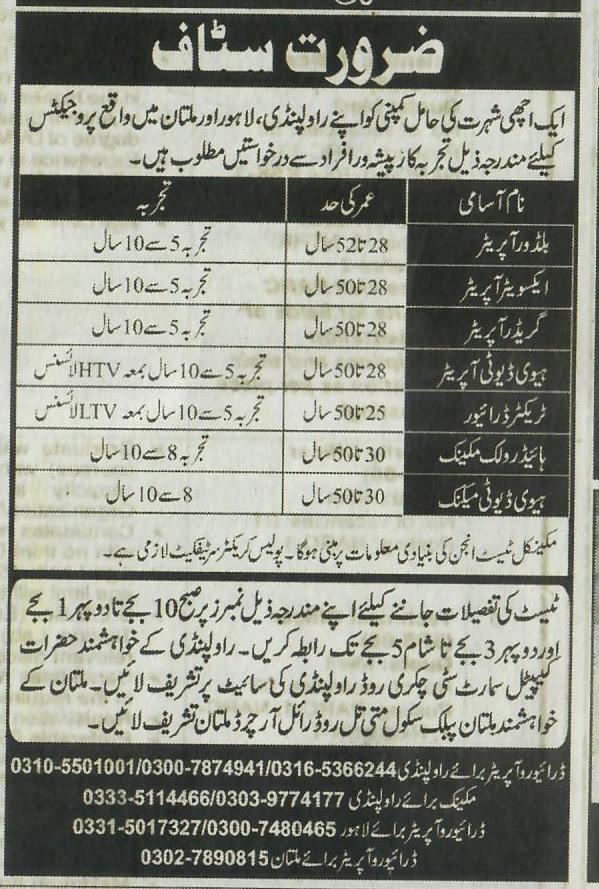 ضرورت سٹاف
ایک اچھی شہرت کی حامل کمپنی کو اپنے راولپنڈی، لاہور اور ملتان میں واقع پروجیکٹس
کیلئے مندرجہ ذیل تجربہ کار پیشہ ور افراد سے درخواستیں مطلوب ہیں۔
نام آسامی عمر کی حد تجربہ
بلڈوزر آپریٹر 28 تا 52 سال تجربہ 5 سے 10 سال
ایکسویٹر آپریٹر 28 تا 50 سال تجربہ 5 سے 10 سال
گریڈر آپریٹر 28 تا 50 سال تجربہ 5 سے 10 سال
ہیوی ڈیوٹی آپریٹر 28 تا 50 سال تجربہ 5 سے 10 سال بمعہ HTV لائسنس
ٹریکٹر ڈرائیور 25 تا 50 سال تجربہ 5 سے 10 سال بمعہ LTV لائسنس
ہائیڈرولک مکینک 30 تا 50 سال تجربہ 8 سے 10 سال
ہیوی ڈیوٹی میکنک 30 تا 50 سال 8 سے 10 سال
مکینکل ٹیسٹ انجن کی بنیادی معلومات پر مبنی ہوگا۔ پولیس کریکٹر سرٹیفکیٹ لازمی ہے۔
ٹیسٹ کی تفصیلات جاننے کیلئے اپنے مندرجہ ذیل نمبرز پر صبح 10 بجے تا دوپہر 1 بجے
اور دوپہر 3 بجے تا شام 5 بجے تک رابطہ کریں۔ راولپنڈی کے خواہشمند حضرات
کیپیٹل سمارٹ سٹی چکری روڈ راولپنڈی کی سائیٹ پر تشریف لائیں۔ ملتان کے
خواہشمند ملتان پبلک سکول متی تل روڈ رائل آرچرڈ ملتان تشریف لائیں۔
ڈرائیور و آپریٹر برائے راولپنڈی 0310-5501001/0300-7874941/0316-5366244
مکینک برائے راولپنڈی 0333-5114466/0303-9774177
ڈرائیور و آپریٹر برائے لاہور 0331-5017327/0300-7480465
ڈرائیور و آپریٹر برائے ملتان 0302-7890815